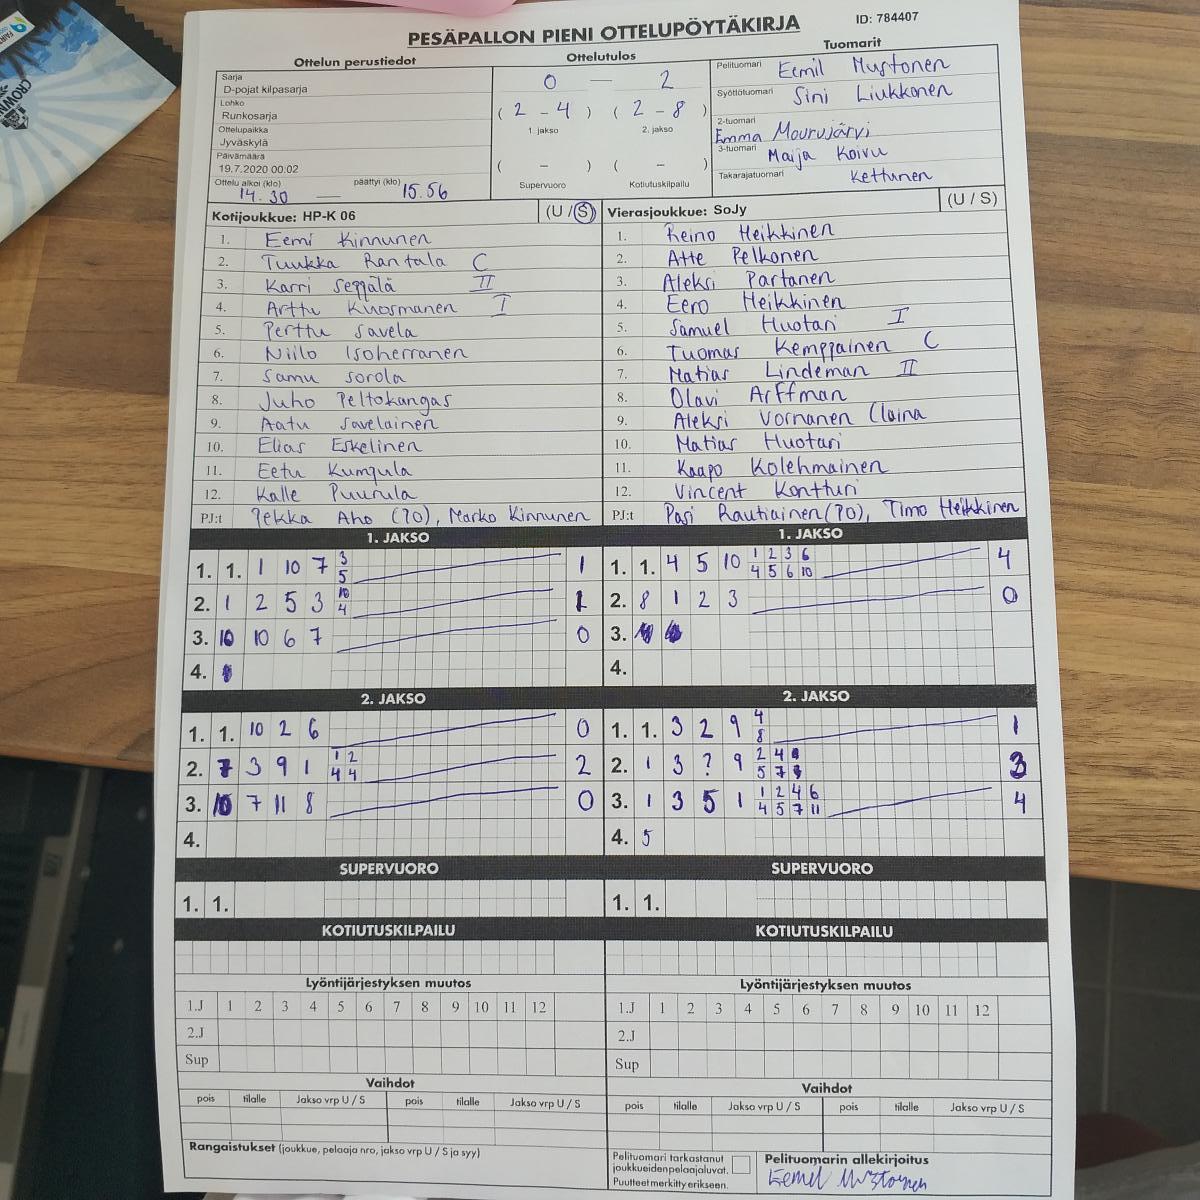 PESÄPALLON PIENI OTTELUPÖYTÄKIRJA
ID: 784407
Ottelun perustiedot
Ottelutulos
Tuomarit
Sarja
D-pojat kilpasarja
Lohko
Runkosarja
Ottelupaikka
Jyväskylä
Päivämäärä
19.7.2020 00:02
Ottelu alkoi (klo) päättyi (klo)
14.30 — 15.56
0 — 2
( 2 - 4 ) ( 2 - 8 )
1. jakso 2. jakso
( - ) ( - )
Supervuoro Kotiutuskilpailu
Pelituomari Eemil Mustonen
Syöttötuomari Sini Liukkonen
2-tuomari
Emma Mourujärvi
3-tuomari Maija Koivu
Takarajatuomari Kettunen
Kotijoukkue: HP-K 06 (U / S)
1. Eemi Kinnunen
2. Tuukka Rantala C
3. Karri Seppälä II
4. Arttu Kuosmanen I
5. Perttu Savela
6. Niilo Isoherranen
7. Samu Sorola
8. Juho Peltokangas
9. Aatu Savelainen
10. Elias Eskelinen
11. Eetu Kumpula
12. Kalle Puurula
PJ:t Pekka Aho (PO), Marko Kinnunen
Vierasjoukkue: SoJy (U / S)
1. Reino Heikkinen
2. Atte Pelkonen
3. Aleksi Partanen
4. Eero Heikkinen
5. Samuel Huotari I
6. Tuomas Kemppainen C
7. Matias Lindeman II
8. Olavi Arffman
9. Aleksi Vornanen
10. Matias Huotari
11. Kaapo Kolehmainen
12. Vincent Kontturi
PJ:t Pasi Rautiainen (PO), Timo Heikkinen
1. JAKSO
1. 1. 1 10 7 3 1
5
2. 1 2 5 3 10 1
4
3. 10 10 6 7 0
4.
1. JAKSO
1. 1. 4 5 10 1 2 3 6 4
4 5 6 10
2. 8 1 2 3 0
3.
4.
2. JAKSO
1. 1. 10 2 6 0
2. 7 3 9 1 1 2 2
4 4
3. 10 7 11 8 0
4.
2. JAKSO
1. 1. 3 2 9 4 1
8
2. 1 3 ? 9 2 4 3
5 7
3. 1 3 5 1 1 2 4 6 4
4 5 7 11
4. 5
SUPERVUORO
1. 1.
SUPERVUORO
1. 1.
KOTIUTUSKILPAILU
KOTIUTUSKILPAILU
Lyöntijärjestyksen muutos
1.J 1 2 3 4 5 6 7 8 9 10 11 12
2.J
Sup
Lyöntijärjestyksen muutos
1.J 1 2 3 4 5 6 7 8 9 10 11 12
2.J
Sup
Vaihdot
pois tilalle Jakso vrp U / S pois tilalle Jakso vrp U / S
Vaihdot
pois tilalle Jakso vrp U / S pois tilalle Jakso vrp U / S
Rangaistukset (joukkue, pelaaja nro, jakso vrp U / S ja syy)
Pelituomari tarkastanut
joukkueiden pelaajaluvat.
Puutteet merkitty erikseen.
Pelituomarin allekirjoitus
Eemel Mustonen